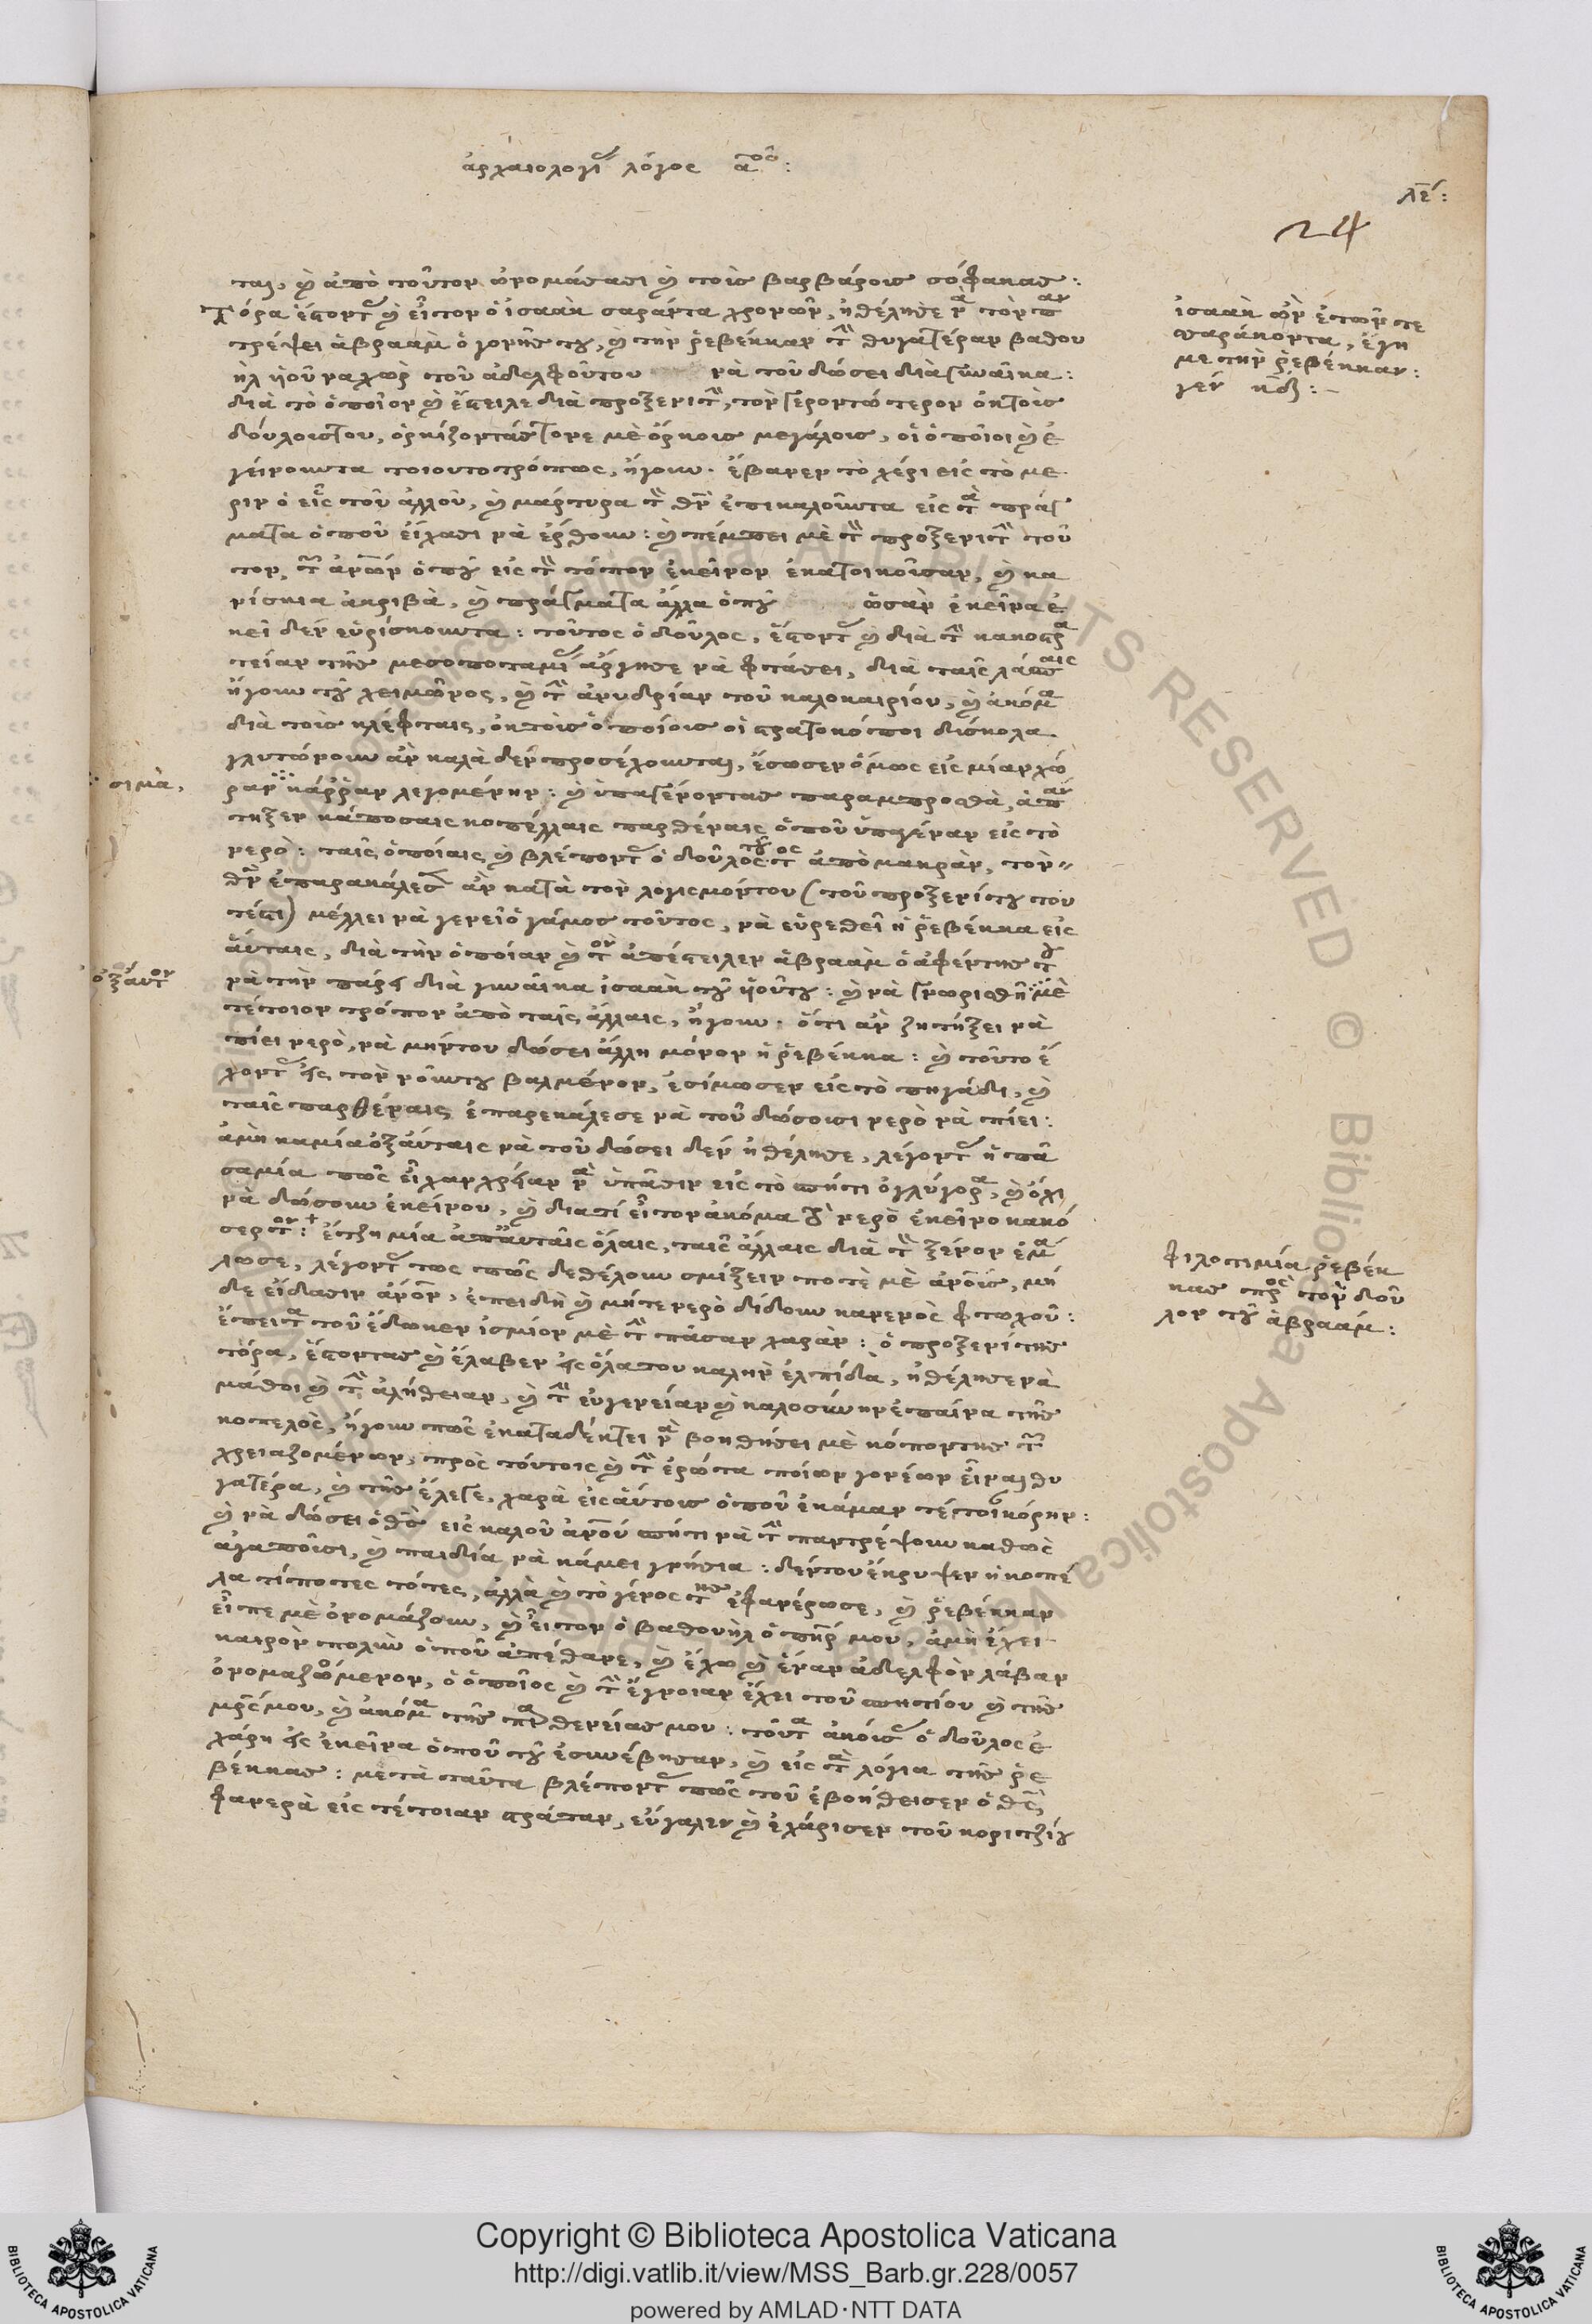 ἀρχαιολογίας λόγος α^ος :
λε :
24
ται, καὶ ἀπὸ τοῦτον ὀνομάσασι καὶ τοὺς βαρβάρους σόφακας :
Τόρα ἔστοντας καὶ εἶτον ὁ ἰσαὰκ σαράντα χρονῶν, ἠθέλησε νὰ τὸν παν
τρέψει ἀβραὰμ ὁ γονήσ του, καὶ τὴν ῥεβέκκαν τὴν θυγατέραν βαθου
ὴλ ὑιοῦ ναχὼρ τοῦ ἀδελφοῦτου νὰ τοῦ δώσει διὰ γυναῖκα :
διὰ τὸ ὁποῖον καὶ ἔστειλε διὰ προξενιτὴν, τὸν γεροντώτερον ὀκ τοὺς
δούλους του, ὁρκίζοντάς τονε μὲ ὅρκους μεγάλους, οἱ ὁποῖοι καὶ ἐ
γείνουντα τοιουτοτρόπως, ἤγουν. ἔβανεν τὸ χέρι εἰς τὸ με
ρὶν ὁ εἷς τοῦ ἀλλοῦ, καὶ μάρτυρα τὸν θν ἐπικαλοῦντα εἰς τὰ πράγ
ματα ὁποῦ εἴχασι νὰ ἐρθουν : καὶ πέμπει μὲ τὸν προξενιτὴν τοῦ
τον, τῶν ἀνων ὁποῦ εἰς τὸν τόπον ἐκεῖνον ἐκατοικοῦσαν, καὶ κα
νίσκια ἀκριβὰ, καὶ πράγματα ἄλλα ὁποῦ ὡσὰν ἐκεῖνα ἐ
κεῖ δὲν εὑρίσκουντα : τοῦτος ὁ δοῦλος, ἔστοντας καὶ διὰ τὴν κακοστρα
τείαν τῆς μεσοποταμίας ἄργησε νὰ φτάσει, διὰ ταῖς λάσπαις
ἤγουν τοῦ χειμῶνος, καὶ τὴν ἀνυδρίαν τοῦ καλοκαιρίου, καὶ ἀκόμα
διὰ τοὺς κλέφταις, ὀκ τοὺς ὁποίους οἱ στρατοκόποι δύσκολα
γλυτώνουν ἂν καλὰ δὲν προσέχουνται, ἔσωσεν ὅμως εἰς μίαν χώ
σιμὰ,
ραν κάρραν λεγομένην : καὶ ὑπαγένοντας παραμπροσθὰ, ἀπάν
τηξεν κάποσαις κοπέλλαις παρθέναις ὁποῦ ὑπαγέναν εἰς τὸ
νερό : ταῖς ὁποίαις καὶ βλέποντας ὁ δοῦλος τοῦτος ἀπὸ μακρὰν, τὸν
θν ἐπαρακάλεσε ἂν κατὰ τὸν λογισμόντου (τοῦ προξενίτου του
τέστι) μέλλει νὰ γενεῖ ὁ γάμος τοῦτος, νὰ εὑρεθεῖ ἡ ῥεβέκκα εἰς
αὐταις, διὰ τὴν ὁποίαν καὶ τὸν ἀπέστειλεν ἀβραὰμ ὁ ἀφέντης του
ὀξαυτον
νὰ τὴν πάρει διὰ γυναῖκα ἰσαὰκ τοῦ ὑιοῦτου : καὶ νὰ γνωρισθῆ μὲ
τέτοιον τρόπον ἀπὸ ταῖς ἄλλαις, ἤγουν. ὅτι ἂν ζητήξει νὰ
πίει νερὸ, νὰ μήντου δώσει ἄλλη μόνον ἡ ῥεβέκκα : καὶ τοῦτο ἔ
χοντας εἰς τὸν νοῦντου βαλμένον, ἐσίμωσεν εἰς τὸ πηγάδι, καὶ
ταῖς παρθέναις ἐπαρεκάλεσε νὰ τοῦ δώσουσι νερὸ νὰ πίει :
ἀμὴ καμία ὀξαύταις νὰ τοῦ δώσει δὲν ἠθέλησε, λέγοντας ἡ πᾶ
σαμία πῶς εἶχαν χρείαν νὰ ὑπᾶσιν εἰς τὸ σπήτι ὀγλήγορα, καὶ ὄχι
νὰ δώσουν ἐκείνου, καὶ διατί εἶτον ἀκόμα τὸ νερὸ ἐκεῖνο κακό
σερτον : ἔτζη μία ἀπ αυταῖς ὅλαις, ταῖς ἄλλαις διὰ τὸν ξένον ἐμά
λωσε, λέγοντας πως πῶς δεθέλουν σμίξειν ποτὲ μὲ ἀνους, μή
δε εἴδασιν ἀνον, ἐπειδὴ καὶ μήτε νερὸ δίδουν κανενὸς φτωχοῦ :
ἔπειτα τοῦ ἔδωκεν ἰσμίον μὲ τὴν πᾶσαν χαρὰν : ὁ προξενίτης
τόρα, ἔστοντας καὶ ἔλαβεν εἰς ὅλατου καλὴν ἐλπίδα, ἠθέλησε νὰ
μάθοι καὶ τὴν ἀλήθειαν, καὶ τὴν εὐγενείαν καὶ καλοσύνην ἐπαίνα τῆς
κοπελὸς, ἤγουν πῶς ἐκαταδέκτει νὰ βοηθήσει μὲ κόποντης τῶν
χρειαζομένων, πρὸς τούτοις καὶ τὴν ἐρώτα ποίων γονέων εἶναι θυ
γατέρα, καὶ τῆς ἔλεγε, χαρὰ εἰς αὐτους ὁποῦ ἐκάμαν τέτοια κόρην :
καὶ νὰ δώσει ὁ θς εἰς καλοῦ ἀνου σπήτι νὰ τὴν παντρέψουν καθὼς
ἀγαποῦσι, καὶ παιδία νὰ κάμει γνήσια : δέντου ἔκρυψεν ἡ κοπέ
λα τίποτες τότες, ἀλλὰ καὶ τὸ γένος της ἐφανέρωσε, καὶ ῥεβέκκαν
εἶπε μὲ ὀνομάζουν, καὶ εἶτον ὁ βαθουὴλ ὁ πηρ μου, ἀμὴ ἔχει
καιρὸν πολὺν ὁποῦ ἀπέθανε, καὶ ἔχω καὶ ἕναν ἀδελφὸν λάβαν
ὀνομαζόμενον, ὁ ὁποῖος καὶ τὴν ἔγνοιαν ἔχει τοῦ σπητίου καὶ τῆς
μρς μου, καὶ ἀκόμα τῆς παρθενείας μου : τοῦτα ἀκούσας ὁ δοῦλος ἐ
χάρη εἰς ἐκεῖνα ὁποῦ τοῦ ἐσυνέβησαν, καὶ εἰς τὰ λόγια τῆς ῥε
βέκκας : μετὰ ταῦτα βλέποντας πῶς τοῦ ἐβοήθεισεν ὁ θς,
φανερὰ εἰς τέτοιαν στράταν, εὔγαλεν καὶ ἐχάρισεν τοῦ κοριτζίου
ἰσαὰκ ὢν ἐτῶν τε
σσαράκοντα, ἔγη
με τὴν ῥεβέκκαν :
γεν κδ : –
φιλοτιμία ῥεβέκ
κας πρὸς τὸν δοῦ
λον τοῦ ἀβραάμ :
Copyright © Biblioteca Apostolica Vaticana
http://digi.vatlib.it/view/MSS_Barb.gr.228/0057
powered by AMLAD·NTT DATA